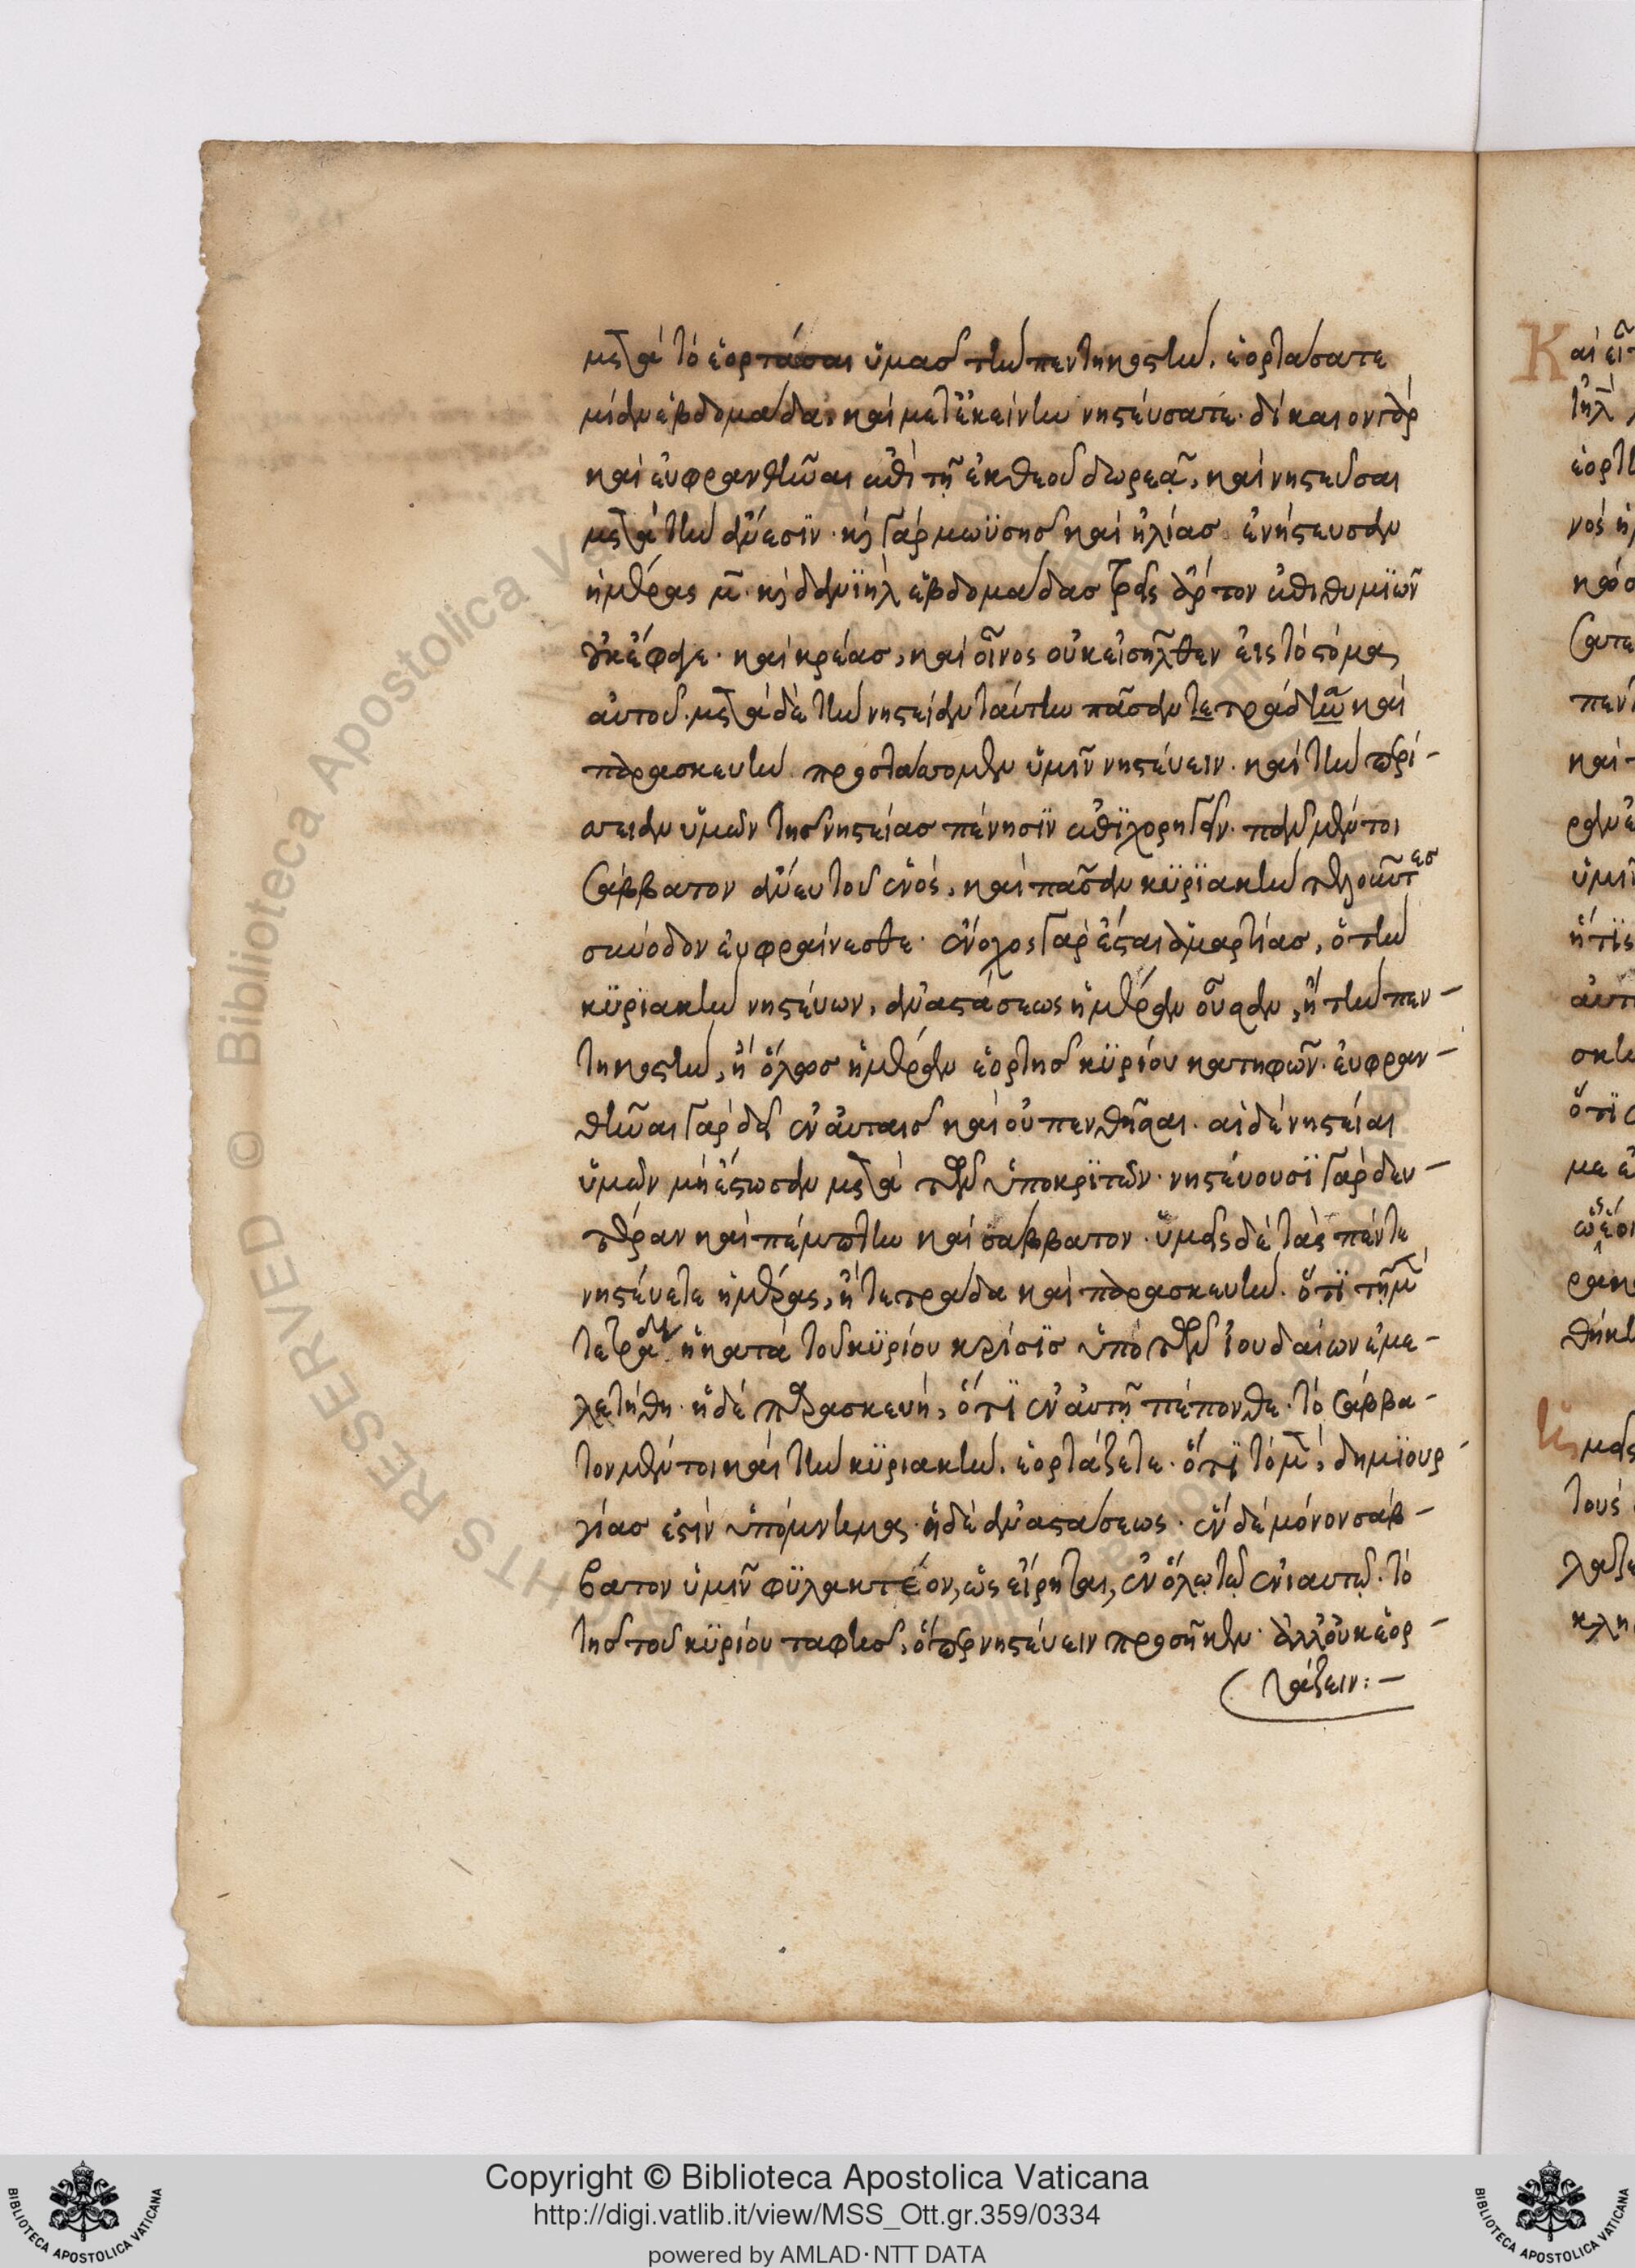 μετὰ τὸ ἑορτάσαι ὑμᾶς τὴν πεντηκοστὴν, ἑορτάσατε
μίαν ἑβδομάδα, καὶ μετ' ἐκείνην νηστεύσατε· δίκαιον γὰρ
καὶ εὐφρανθῆναι ἐπὶ τῇ ἐκ θεοῦ δωρεᾷ, καὶ νηστεῦσαι
μετὰ τὴν ἄνεσϊν· καὶ γὰρ μωϋσῆς καὶ ἠλίας ἐνήστευσαν
ἡμέρας μ̅· καὶ δανϊὴλ ἑβδομάδας τρεῖς ἄρτον ἐπιθυμϊῶν
οὐκ ἔφαγε· καὶ κρέας, καὶ οἶνος οὐκ εἰσῆλθεν εἰς τὸ στόμα
αὐτοῦ· μετὰ δὲ τὴν νηστείαν ταύτην πᾶσαν τετράδην καὶ
παρασκευὴν προστάττομεν ὑμῖν νηστεύειν· καὶ τὴν περι-
ττείαν ὑμῶν τῆς νηστείας πένησϊν ἐπϊχορηγεῖν· πᾶν μέντοι
σάββατον ἄνευ τοῦ ἑνός, καὶ πᾶσαν κϋρϊακὴν πλοῦντες
σκύοδον εὐφραίνεσθε· ἔνοχος γὰρ ἔσται ἁμαρτίας, ὁ τὴν
κϋρϊακὴν νηστεύων, ἀναστάσεως ἡμέραν οὖσαν, ἢ τὴν πεν-
τηκοστὴν, ἢ ὅλως ἡμέραν ἑορτῆς κϋρίου κατηφῶν· εὐφραν-
θῆναι γὰρ δεῖ ἐν αὐταῖς καὶ οὐ πενθῆσαι· αἱ δὲ νηστεῖαι
ὑμῶν μὴ ἔστωσαν μετὰ τῶν ὑποκρϊτῶν· νηστεύουσϊ γὰρ δευ-
τέραν καὶ πέμπτην καὶ σάββατον· ὑμεῖς δὲ τὰς πέντε
νηστεύετε ἡμέρας, ἢ τετράδα καὶ παρασκευὴν· ὅτϊ τῇ μὲν
τετράδι ἡ κατὰ τοῦ κϋρίου κρίσϊς ὑπὸ τῶν ἰουδαίων ἐμε-
λετήθη· ἡ δὲ παρασκευή, ὅτϊ ἐν αὐτῇ πέπονθε· τὸ σάββα-
τον μέντοι καὶ τὴν κϋρϊακὴν, ἑορτάζετε· ὅτϊ τὸ μὲν, δημϊουρ-
γίας ἐστὶν ὑπόμνημα· ἡ δὲ ἀναστάσεως· ἓν δὲ μόνον σάβ-
βατον ὑμῖν φϋλακτέον, ὡς εἴρηται, ἐν ὅλῳ τῷ ἐνιαυτῷ· τὸ
τῆς τοῦ κϋρίου ταφῆς, ὅπερ νηστεύειν προσῆκεν· ἀλλ' οὐκ ἑορ-
τάζειν:–
Copyright © Biblioteca Apostolica Vaticana
http://digi.vatlib.it/view/MSS_Ott.gr.359/0334
powered by AMLAD·NTT DATA